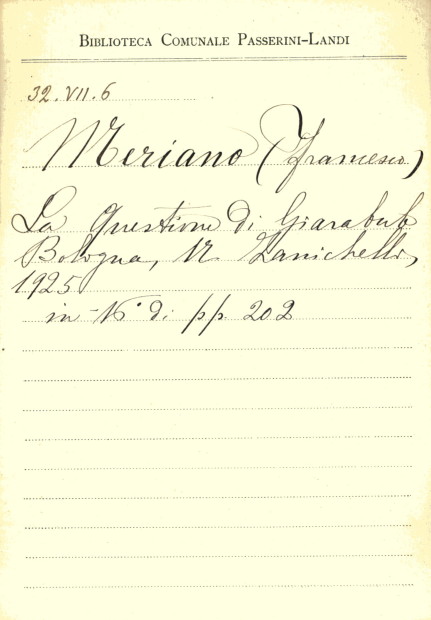 BIBLIOTECA COMUNALE PASSERINI-LANDI
32. VII. 6
Meriano (Francesco)
La Questione di Giarabub
Bologna, N. Zanichelli,
1925
in-16° di pp. 202